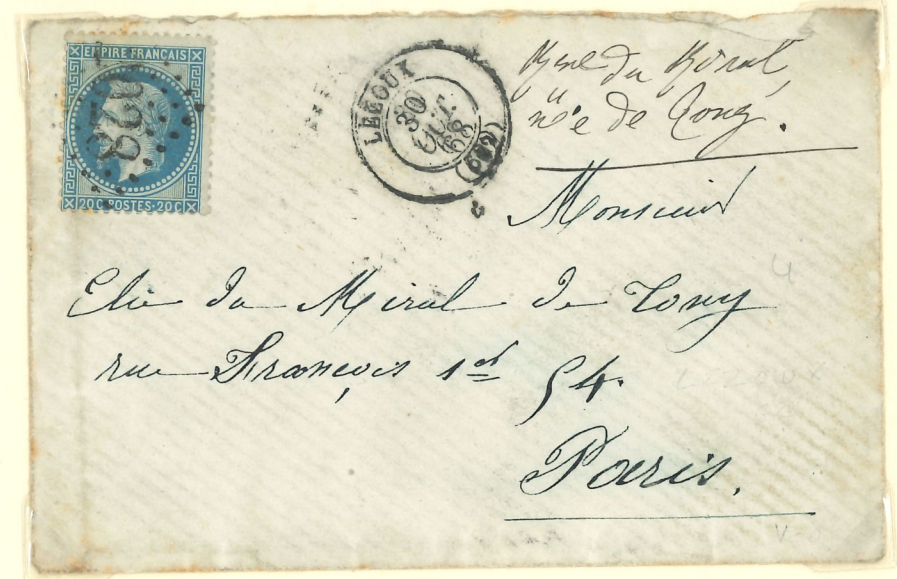 EMPIRE FRANÇAIS
20 C POSTES 20 C
LEZOUX
30
OCT.
68
(62)
du Miral
née de Tony.
Monsieur
Elie du Miral de Tony
rue François 1er 54.
Paris.
4